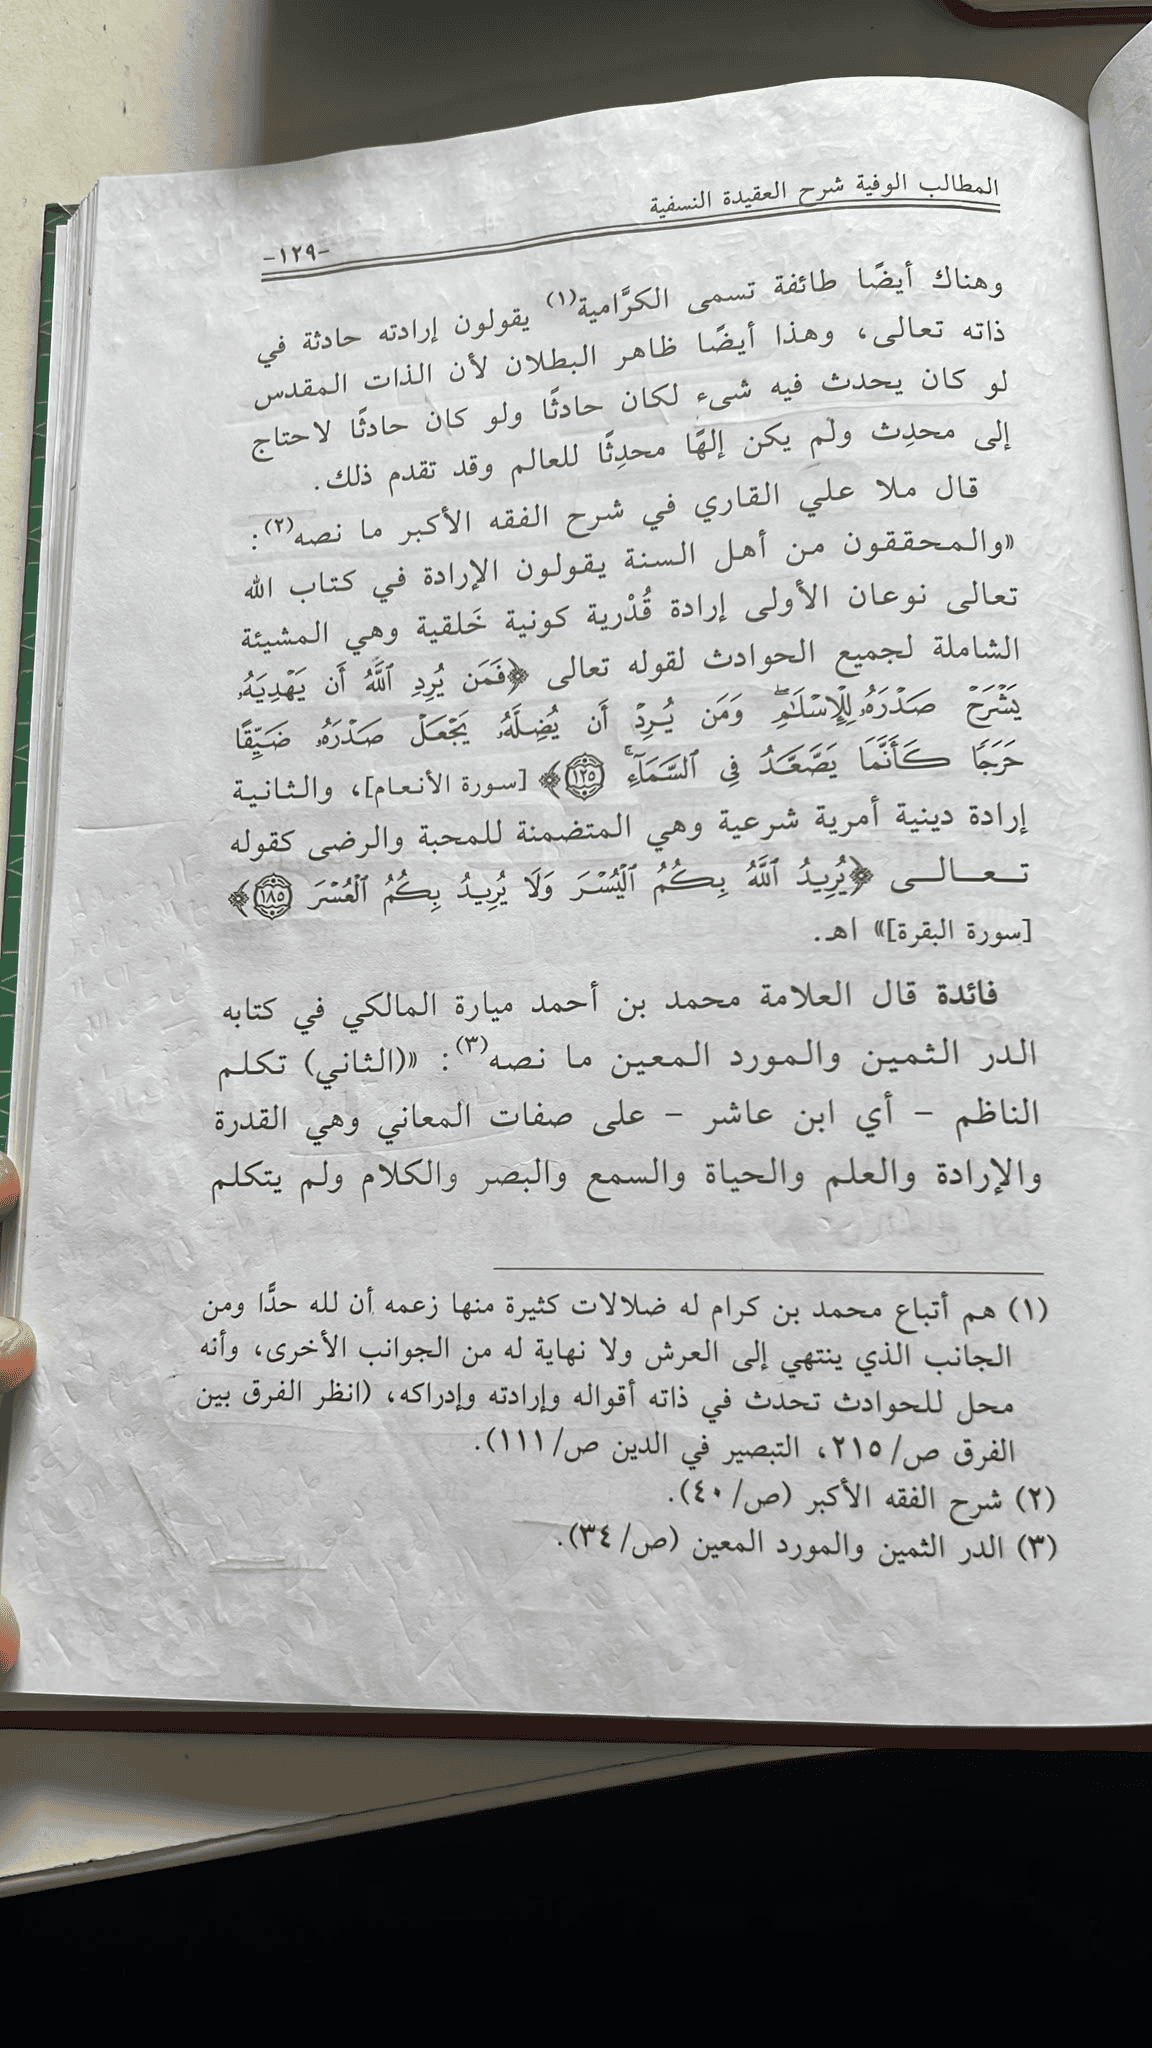 المطالب الوفية شرح العقيدة النسفية
-١٢٩-
وهناك أيضًا طائفة تسمى الكرَّامية(١) يقولون إرادته حادثة في
ذاته تعالى، وهذا أيضًا ظاهر البطلان لأن الذات المقدس
لو كان يحدث فيه شىء لكان حادثًا ولو كان حادثًا لاحتاج
إلى محدِث ولم يكن إلهًا محدِثًا للعالم وقد تقدم ذلك.
قال ملا علي القاري في شرح الفقه الأكبر ما نصه(٢):
«والمحققون من أهل السنة يقولون الإرادة في كتاب الله
تعالى نوعان الأولى إرادة قُدْرية كونية خَلقية وهي المشيئة
الشاملة لجميع الحوادث لقوله تعالى ﴿فَمَن يُرِدِ ٱللَّهُ أَن يَهْدِيَهُۥ
يَشْرَحْ صَدْرَهُۥ لِلْإِسْلَٰمِۖ وَمَن يُرِدْ أَن يُضِلَّهُۥ يَجْعَلْ صَدْرَهُۥ ضَيِّقًا
حَرَجًا كَأَنَّمَا يَصَّعَّدُ فِى ٱلسَّمَآءِۚ ١٢٥﴾ [سورة الأنعام]، والثانية
إرادة دينية أمرية شرعية وهي المتضمنة للمحبة والرضى كقوله
تعالى ﴿يُرِيدُ ٱللَّهُ بِكُمُ ٱلْيُسْرَ وَلَا يُرِيدُ بِكُمُ ٱلْعُسْرَ ١٨٥﴾
[سورة البقرة]» اهـ.
فائدة قال العلامة محمد بن أحمد ميارة المالكي في كتابه
الدر الثمين والمورد المعين ما نصه(٣): «(الثاني) تكلم
الناظم - أي ابن عاشر - على صفات المعاني وهي القدرة
والإرادة والعلم والحياة والسمع والبصر والكلام ولم يتكلم
(١) هم أتباع محمد بن كرام له ضلالات كثيرة منها زعمه أن لله حدًّا ومن
الجانب الذي ينتهي إلى العرش ولا نهاية له من الجوانب الأخرى، وأنه
محل للحوادث تحدث في ذاته أقواله وإرادته وإدراكه، (انظر الفرق بين
الفرق ص/٢١٥، التبصير في الدين ص/١١١).
(٢) شرح الفقه الأكبر (ص/٤٠).
(٣) الدر الثمين والمورد المعين (ص/٣٤).